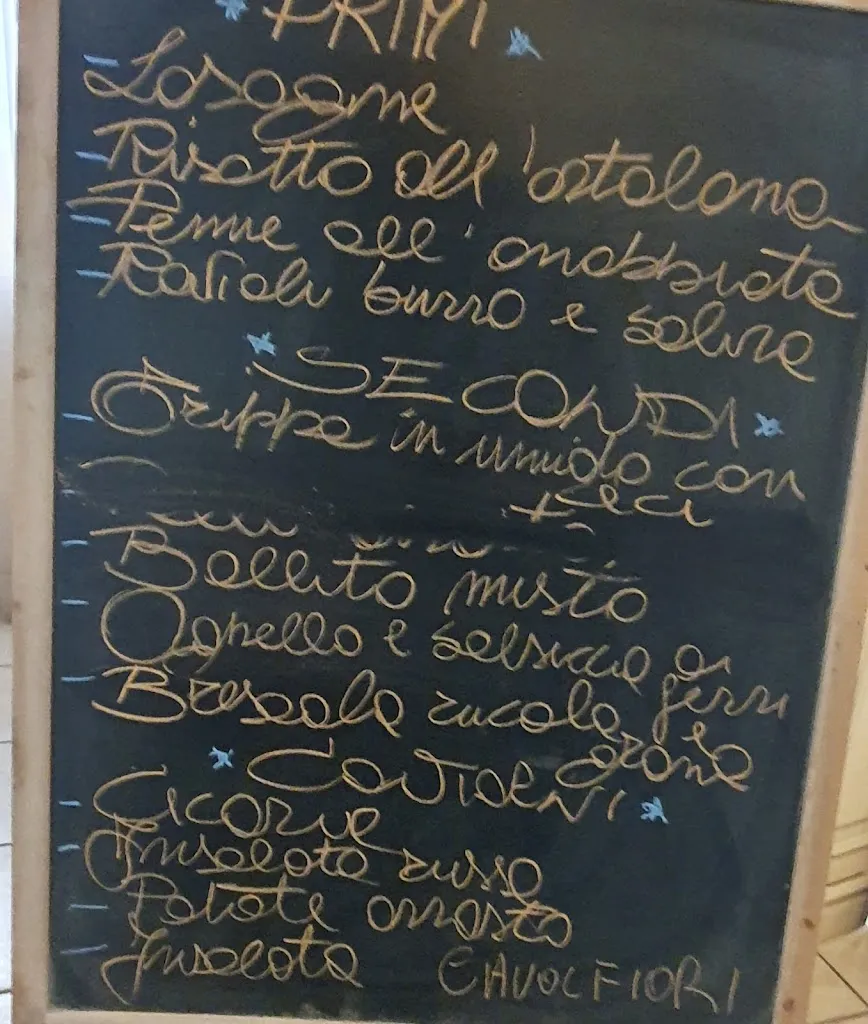 PRIMI
- Lasagne
- Risotto all'ortolana
- Penne all'arrabbiata
- Ravioli burro e salvia
SECONDI
- Trippa in umido con
ceci
- Bollito misto
- Agnello e salsiccia ai
ferri
- Bresaola rucola e
grana
CONTORNI
- Cicoria
- Insalata russa
- Patate arrosto
- Insalata CAVOLFIORI